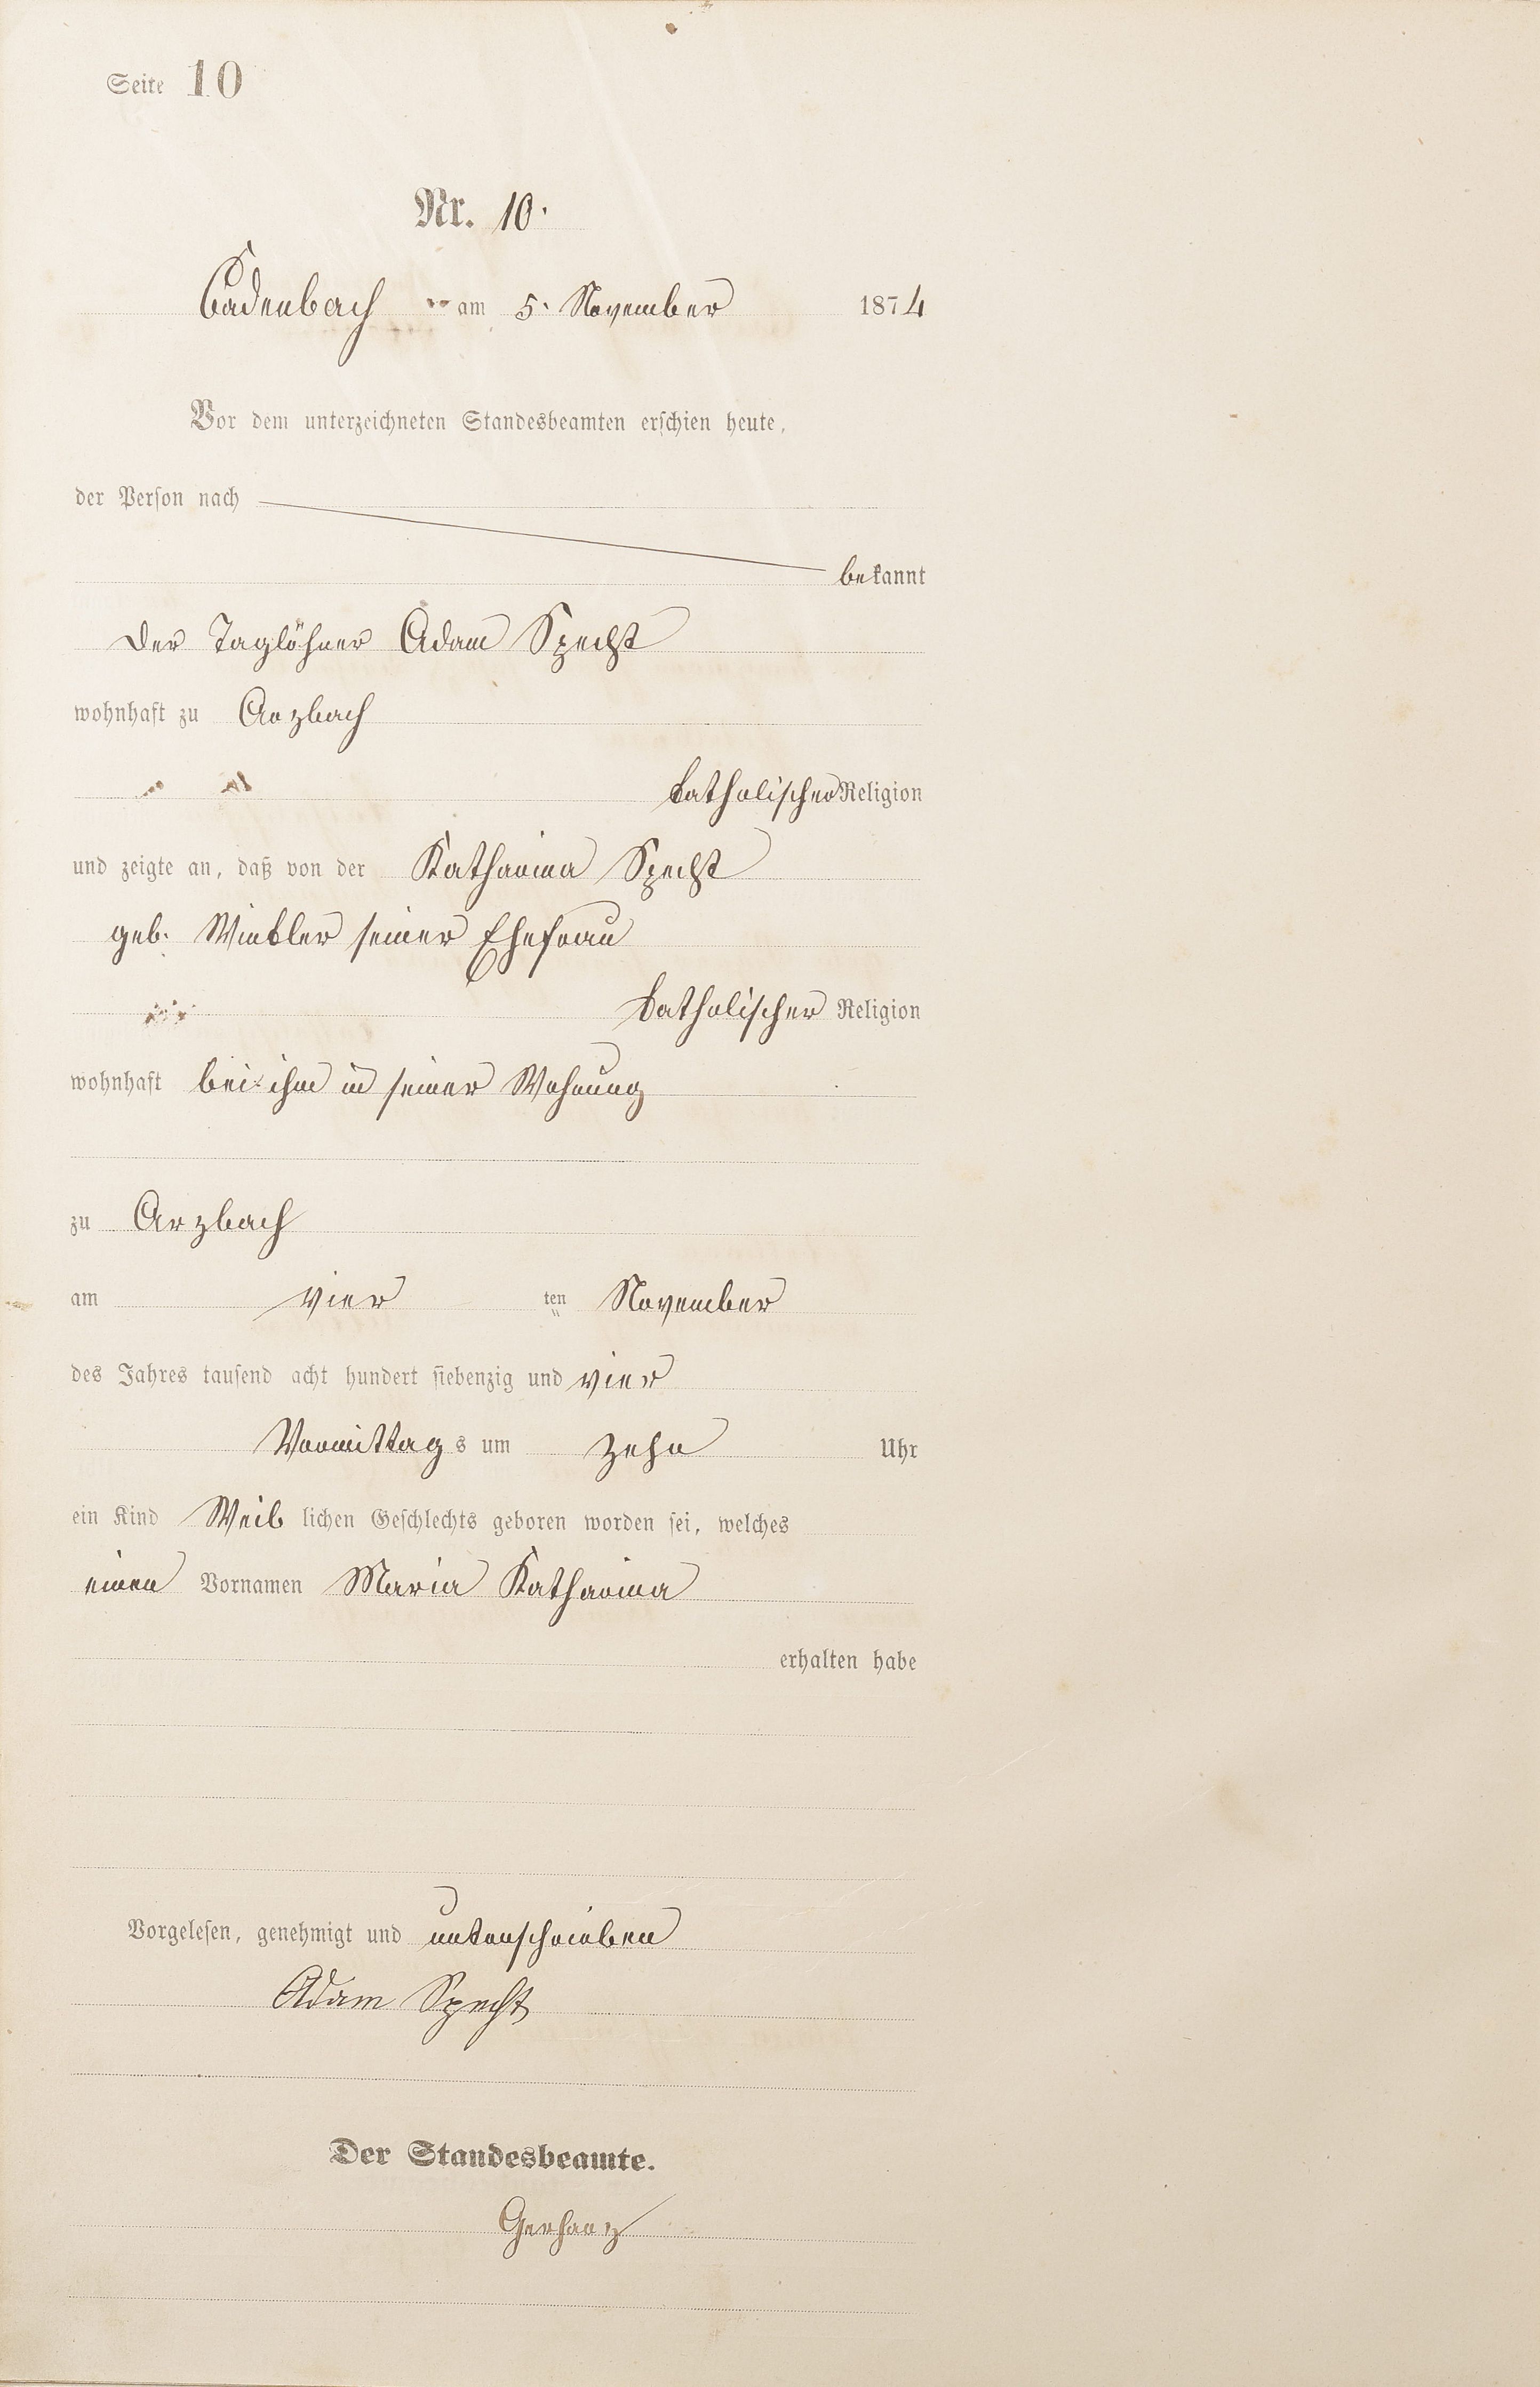 Seite 10
Nr. 10.
Cadenbach am 5. November 1874
Vor dem unterzeichneten Standesbeamten erschien heute,
der Person nach
bekannt
der Taglöhner Adam Specht
wohnhaft zu Arzbach
katholischer Religion
und zeigte an, daß von der Katharina Specht
geb. Winkler seiner Ehefrau
katholischer Religion
wohnhaft bei ihm in seiner Wohnung
zu Arzbach
am vier ten November
des Jahres tausend acht hundert siebenzig und vier
Vormittags um zehn Uhr
ein Kind Weiblichen Geschlechts geboren worden sei, welches
einen Vornamen Maria Katharina
erhalten habe
Vorgelesen, genehmigt und unterschrieben
Adam Specht
Der Standesbeamte.
Gerharz